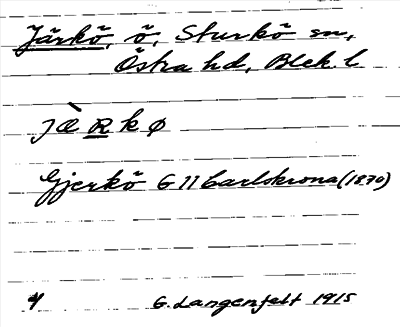 Järkö, ö, Sturkö sn,
Östra hd, Blek. l
JÆRkø
Gjerkö G 11 Carlskrona (1870)
G. Langenfelt 1915